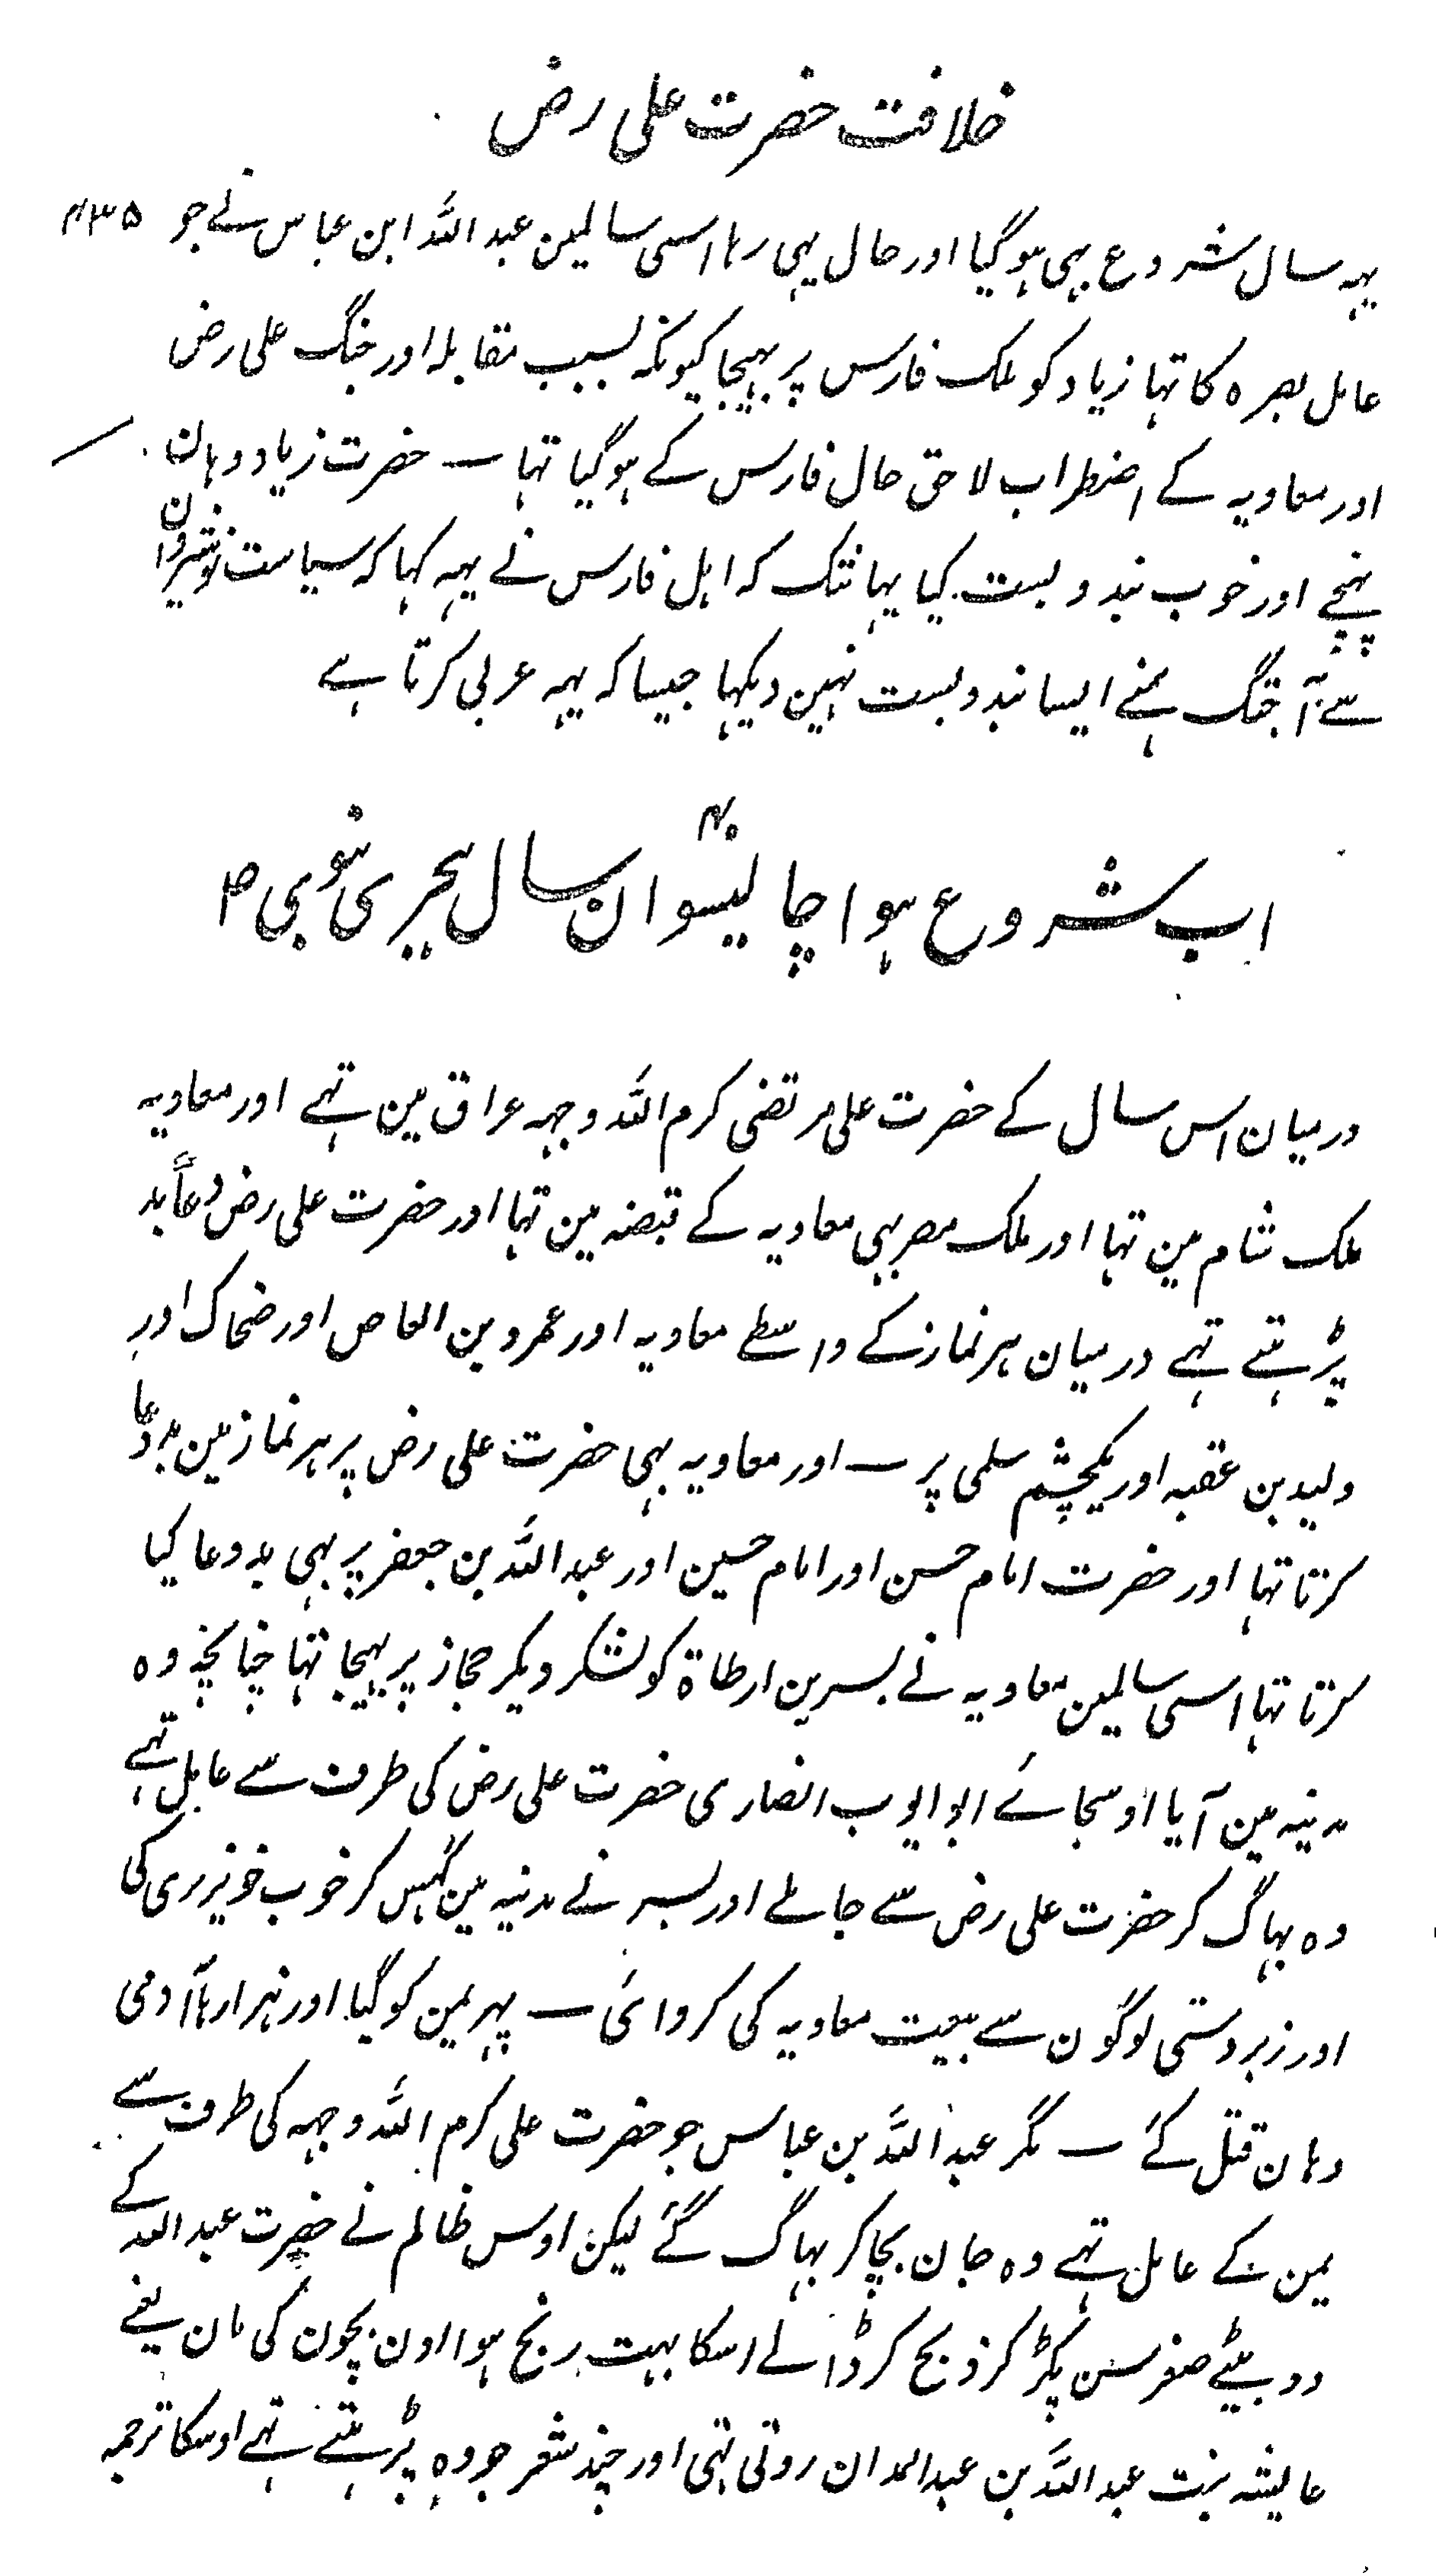 خلافت حضرت علی رض
۴۳۵
یہہ سال شروع بہی ہو گیا اور حال یہی رہا اسی سالمین عبد اللہ ابن عباس نے جو
عامل بصرہ کا تہا زیاد کو ملک فارس پر بہیجا کیونکہ بسبب مقابلہ اور جنگ علی رض
اور معاویہ کے اضطراب لاحق حال فارس کے ہو گیا تہا — حضرت زیاد وہان
پہنچے اور خوب بندوبست کیا یہانتک کہ اہل فارس نے یہہ کہا کہ سیاست نوشیروان
سے آجتک ہمنے ایسا بندوبست نہین دیکہا جیسا کہ یہہ عربی کرتا ہے
اب شروع ہوا چالیسوان ۴۰ سال ہجری نبوی ص
درمیان اس سال کے حضرت علی مرتضی کرم اللہ وجہہ عراق مین تہے اور معاویہ
ملک شام مین تہا اور ملک مصر بہی معاویہ کے قبضہ مین تہا اور حضرت علی رض دعاً بد
پڑہتے تہے درمیان ہر نماز کے واسطے معاویہ اور عمرو بن العاص اور ضحاک اور
ولید بن عقبہ اور یکچشم سلمی پر — اور معاویہ بہی حضرت علی رض پر ہر نماز مین بد دعا
کرتا تہا اور حضرت امام حسن اور امام حسین اور عبد اللہ بن جعفر پر بہی بد دعا کیا
کرتا تہا اسی سالمین معاویہ نے بسر بن ارطاۃ کو لشکر دیکر حجاز پر بہیجا تہا چنانچہ وہ
مدینہ مین آیا اوسجائے ابو ایوب انصاری حضرت علی رض کی طرف سے عامل تہے
وہ بہاگ کر حضرت علی رض سے جا ملے اور بسر نے مدینہ مین گہس کر خوب خونریزی کی
اور زبردستی لوگون سے بیعت معاویہ کی کروائی — پہر یمن کو گیا اور ہزارہا آدمی
وہان قتل کئے — مگر عبد اللہ بن عباس جو حضرت علی کرم اللہ وجہہ کی طرف سے
یمن کے عامل تہے وہ جان بچا کر بہاگ گئے لیکن اوس ظالم نے حضرت عبد اللہ کے
دو بیٹے صغر سن پکڑ کر ذبح کر ڈالے اسکا بہت رنج ہوا اون بچون کی مان یعنے
عایشہ بنت عبد اللہ بن عبد المدان روتی تہی اور چند شعر جو وہ پڑہتے تہے اوسکا ترجمہ